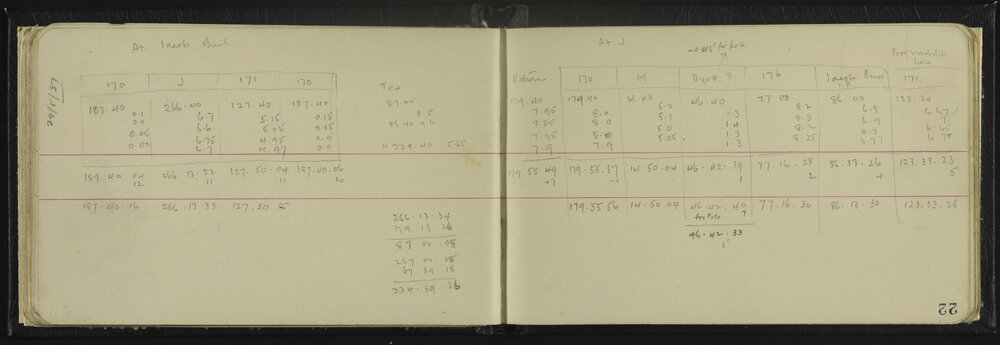 At Jacobs Bush
170 J 171 170
187.40 266.00 127.40 187.40
0.1 6.7 5.15 0.15
0.1 6.6 5.05 0.15
0.05 6.75 4.95 0.0
0.00 6.7 4.97 0.0
187.40 04 266 13.22 127.50.04 187.40.06
12 11 11 10
187.40.16 266.13.33 127.50 15
87.00
0.5
H 339 40 5.65
266 13.34
179 13.26
87 00.08
267.00.08
67 39 18
334.39 26
At J
Returns 170 H Dyott. S 176 Jacobs Bush 171.
Poor
here
179.40 179.40 14.40 46.40 77.00 86.00 123.20
7.95 8.0 5.0 1.3 8.2 6.9 6.67
7.85 8.0 5.1 1.4 8.3 6.9 7.
7.95 8.0 5.0 1.3 8.2 6.7 6.65
7.9 7.9 5.05 1.3 8.25 6.77 6.75
179.55.49 179.55.57 14.50.04 46.42.39 77.16.28 86.13.26 123.33.23
+7 -1 1 2 4 5
179.55.56 14.50.04 46.42.40 77.16.30 86.13.30 123.33.28
for Pole 7
46.42.33
22